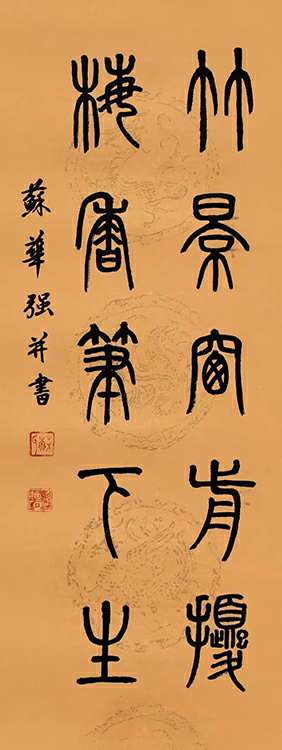 竹景窗前擾
梅香筆下生
蘇華强并書